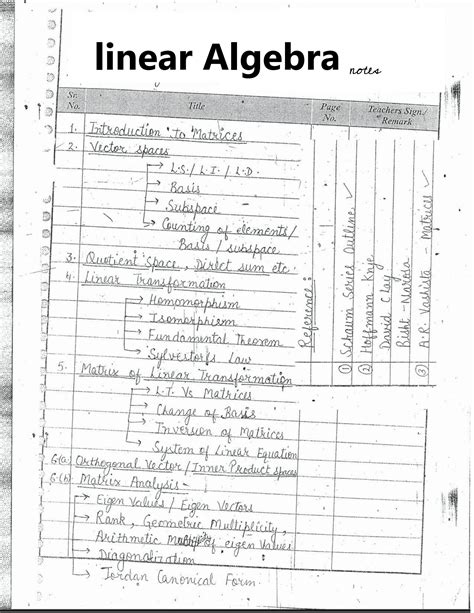 linear Algebra notes
Sr. No. Title Page No. Teachers Sign./ Remark
1. Introduction to Matrices
2. Vector spaces
→ L.S./ L.I. / L.D.
→ Basis
→ Subspace
→ Counting of elements/
Basis / subspace
3. Quotient Space, Direct sum etc.
4. Linear Transformation
→ Homomorphism
→ Isomorphism
→ Fundamental Theorem
→ Sylvestor's Law
5. Matrix of Linear Transformation
→ L.T. Vs Matrices
→ Change of Basis
→ Inversion of Matrices
→ System of Linear Equation
6(a) Orthogonal Vector / Inner Product spaces
6(b) Matrix Analysis -
→ Eigen Values / Eigen Vectors
→ Rank, Geometric Multiplicity,
Arithmetic of eigen Values
→ Diagonalization
→ Jordan Canonical Form.
References:
① Schaum Series Outline ✓
② Hoffmann Knje
David C Lay
Bisht - Narosa
③ A.R. Vashista - Matrices ✓